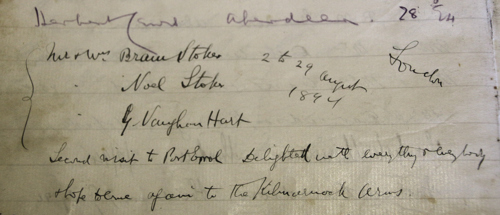 Herbert Aberdeen. 28 8/94
Mr & Mrs Bram Stoker 2 to 29 August 1894 London
" Noel Stoker
" G. Vaughan Hart
Second visit to Port Errol Delighted with everything & everybody
& hope to come again to the Kilmarnock Arms.